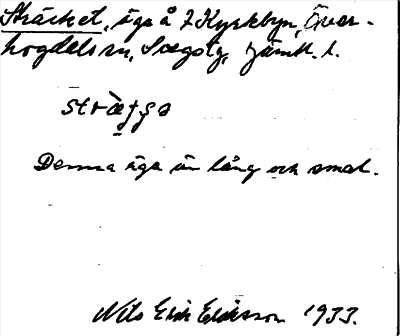 Sträcket, äga å 2 Kyrkbyn, Över-
hogdals sn, Svegs tg, Jämtl. l.
Denna äga är lång och smal.
Nils Erik Eriksson 1933.